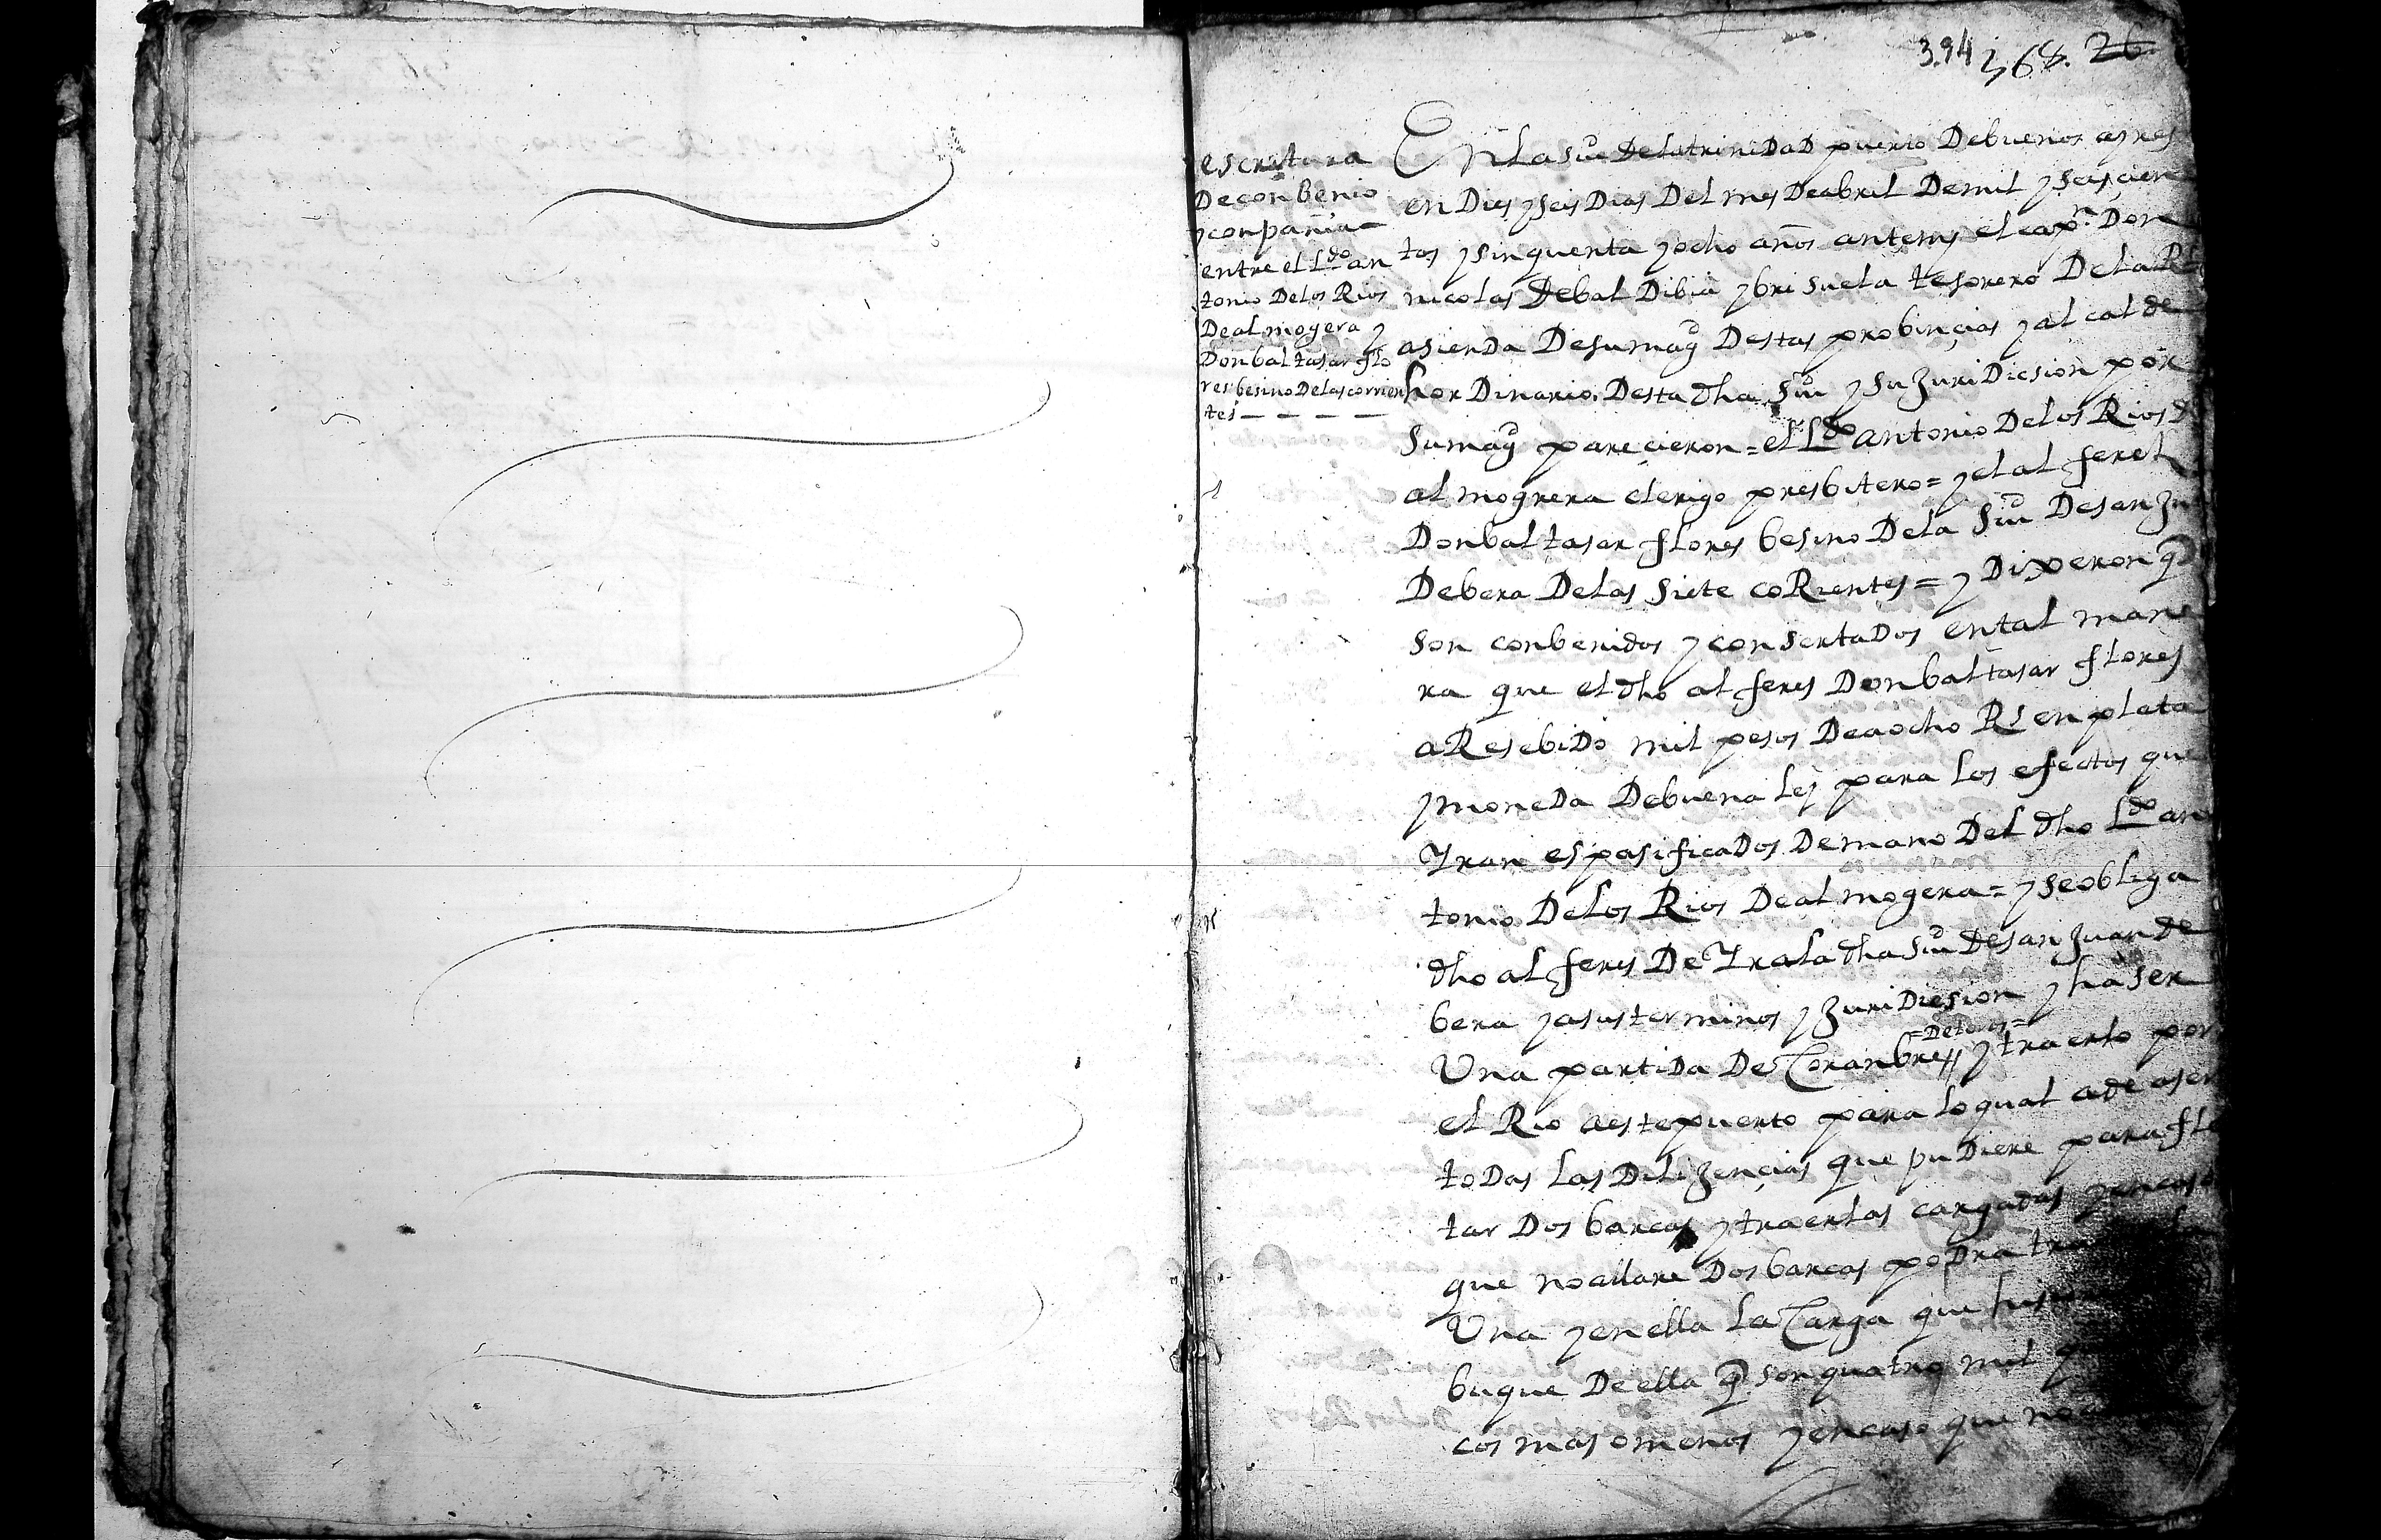 3.94 368. 26
escritura
De conbenio
y conpañia
entre el Ldo an
tonio De los Rios
De almogera y
Don baltasar flo
res besino De las corrien
tes — — — —
En la siud De la trinidaD puerto De buenos ayres
en Dies y seis Dias Del mes De abril De mil y seis çien
tos y sinquenta y ocho años ante my el capn. Don
nicolas De bal Dibia y bri suela tesorero De la Rl
asienda De su magd Destas probinçias y alcal de
hor Dinario. Desta dha siud y su Juri Diesion por
su magd pareçieron = el Ldo antonio De los Rios d
al mogrera clerigo presbitero = y el al feres
Don bal tasar flores besino De la siud De san Ju
De bera De las siete coRientes = y Dixeron q
son conbenidos y consertaDos en tal mane
ra que el dho al feres Don baltasar flores
a ResebiDo mil pesos De a ocho Rs en plata
y moneDa De buena ley para los efectos que
Yran espasificaDos De mano Del dho Ldo an
tonio De los Rios De al mogera = y se obliga
dho al feres De Yr a la dha siud De san Juan de
bera y a sus terminos y Juri Diesion y haser
Una partiDa De Coranbres =De toros= y traerlo por
el Rio a este puerto para lo qual a de aser
toDas las Dili Jençias que pu Diere para fle
tar Dos barcas y traerlas cargadas y en caso
que no allare Dos barcas poDra tra
Una y en ella la Carga que
buque De ella q son quatro mil
cos mas o menos y en caso que no